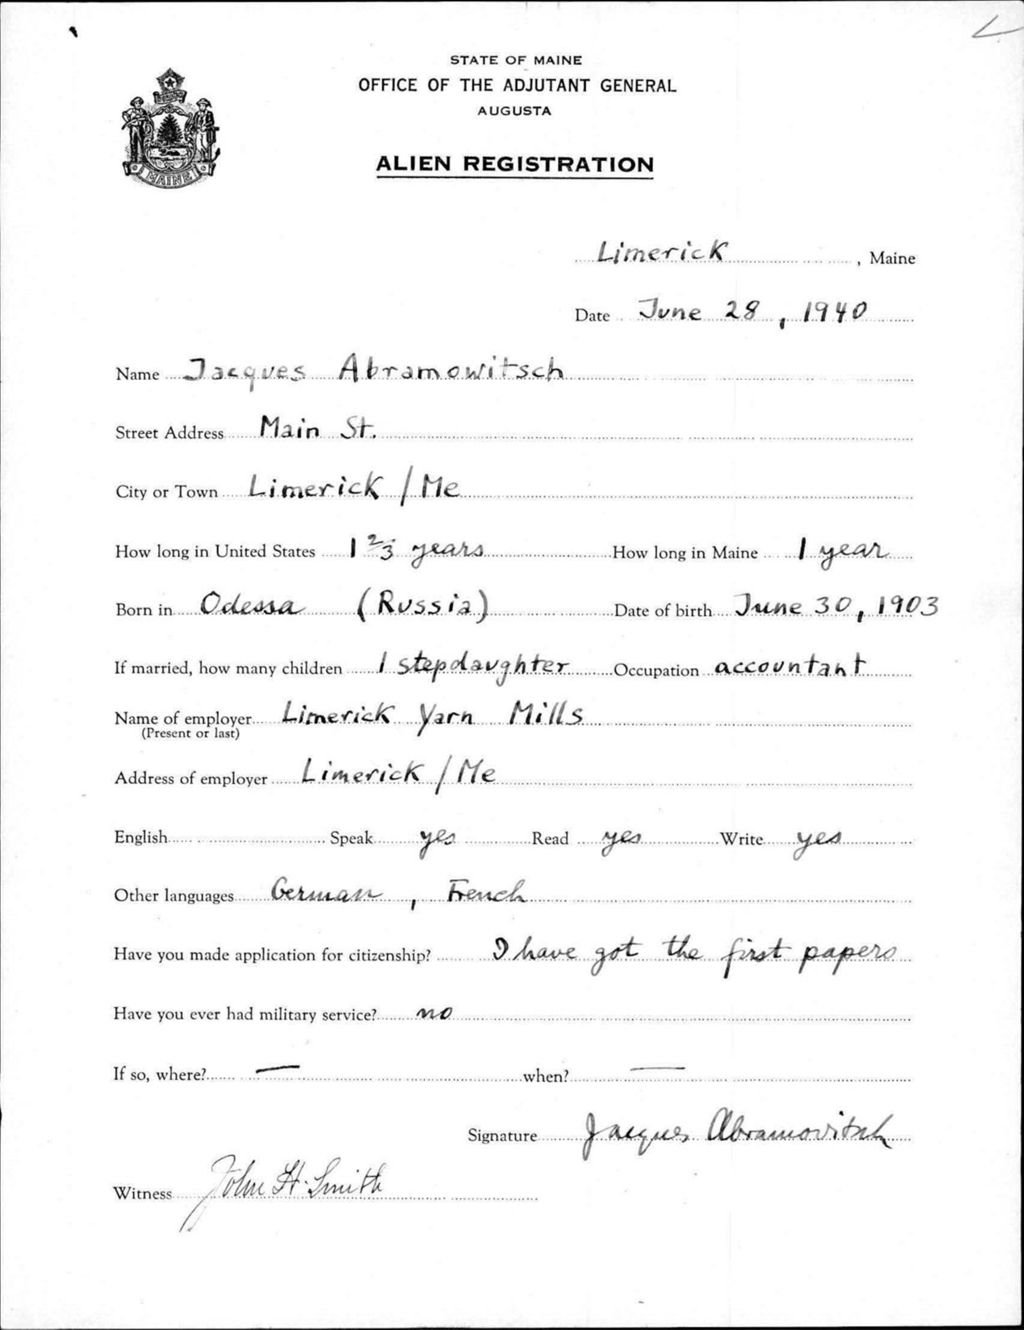 STATE OF MAINE
OFFICE OF THE ADJUTANT GENERAL
AUGUSTA
ALIEN REGISTRATION
MAINE
Limerick , Maine
Date June 28, 1940
Name Jacques Abramowitsch
Street Address Main St.
City or Town Limerick / Me
How long in United States 1 2/3 years How long in Maine 1 year
Born in Odessa (Russia) Date of birth June 30, 1903
If married, how many children 1 stepdaughter Occupation accountant
Name of employer Limerick Yarn Mills
(Present or last)
Address of employer Limerick / Me
English Speak yes Read yes Write yes
Other languages German, French
Have you made application for citizenship? I have got the first papers
Have you ever had military service? no
If so, where? — when? —
Signature Jacques Abramovitsch
Witness John H. Smith